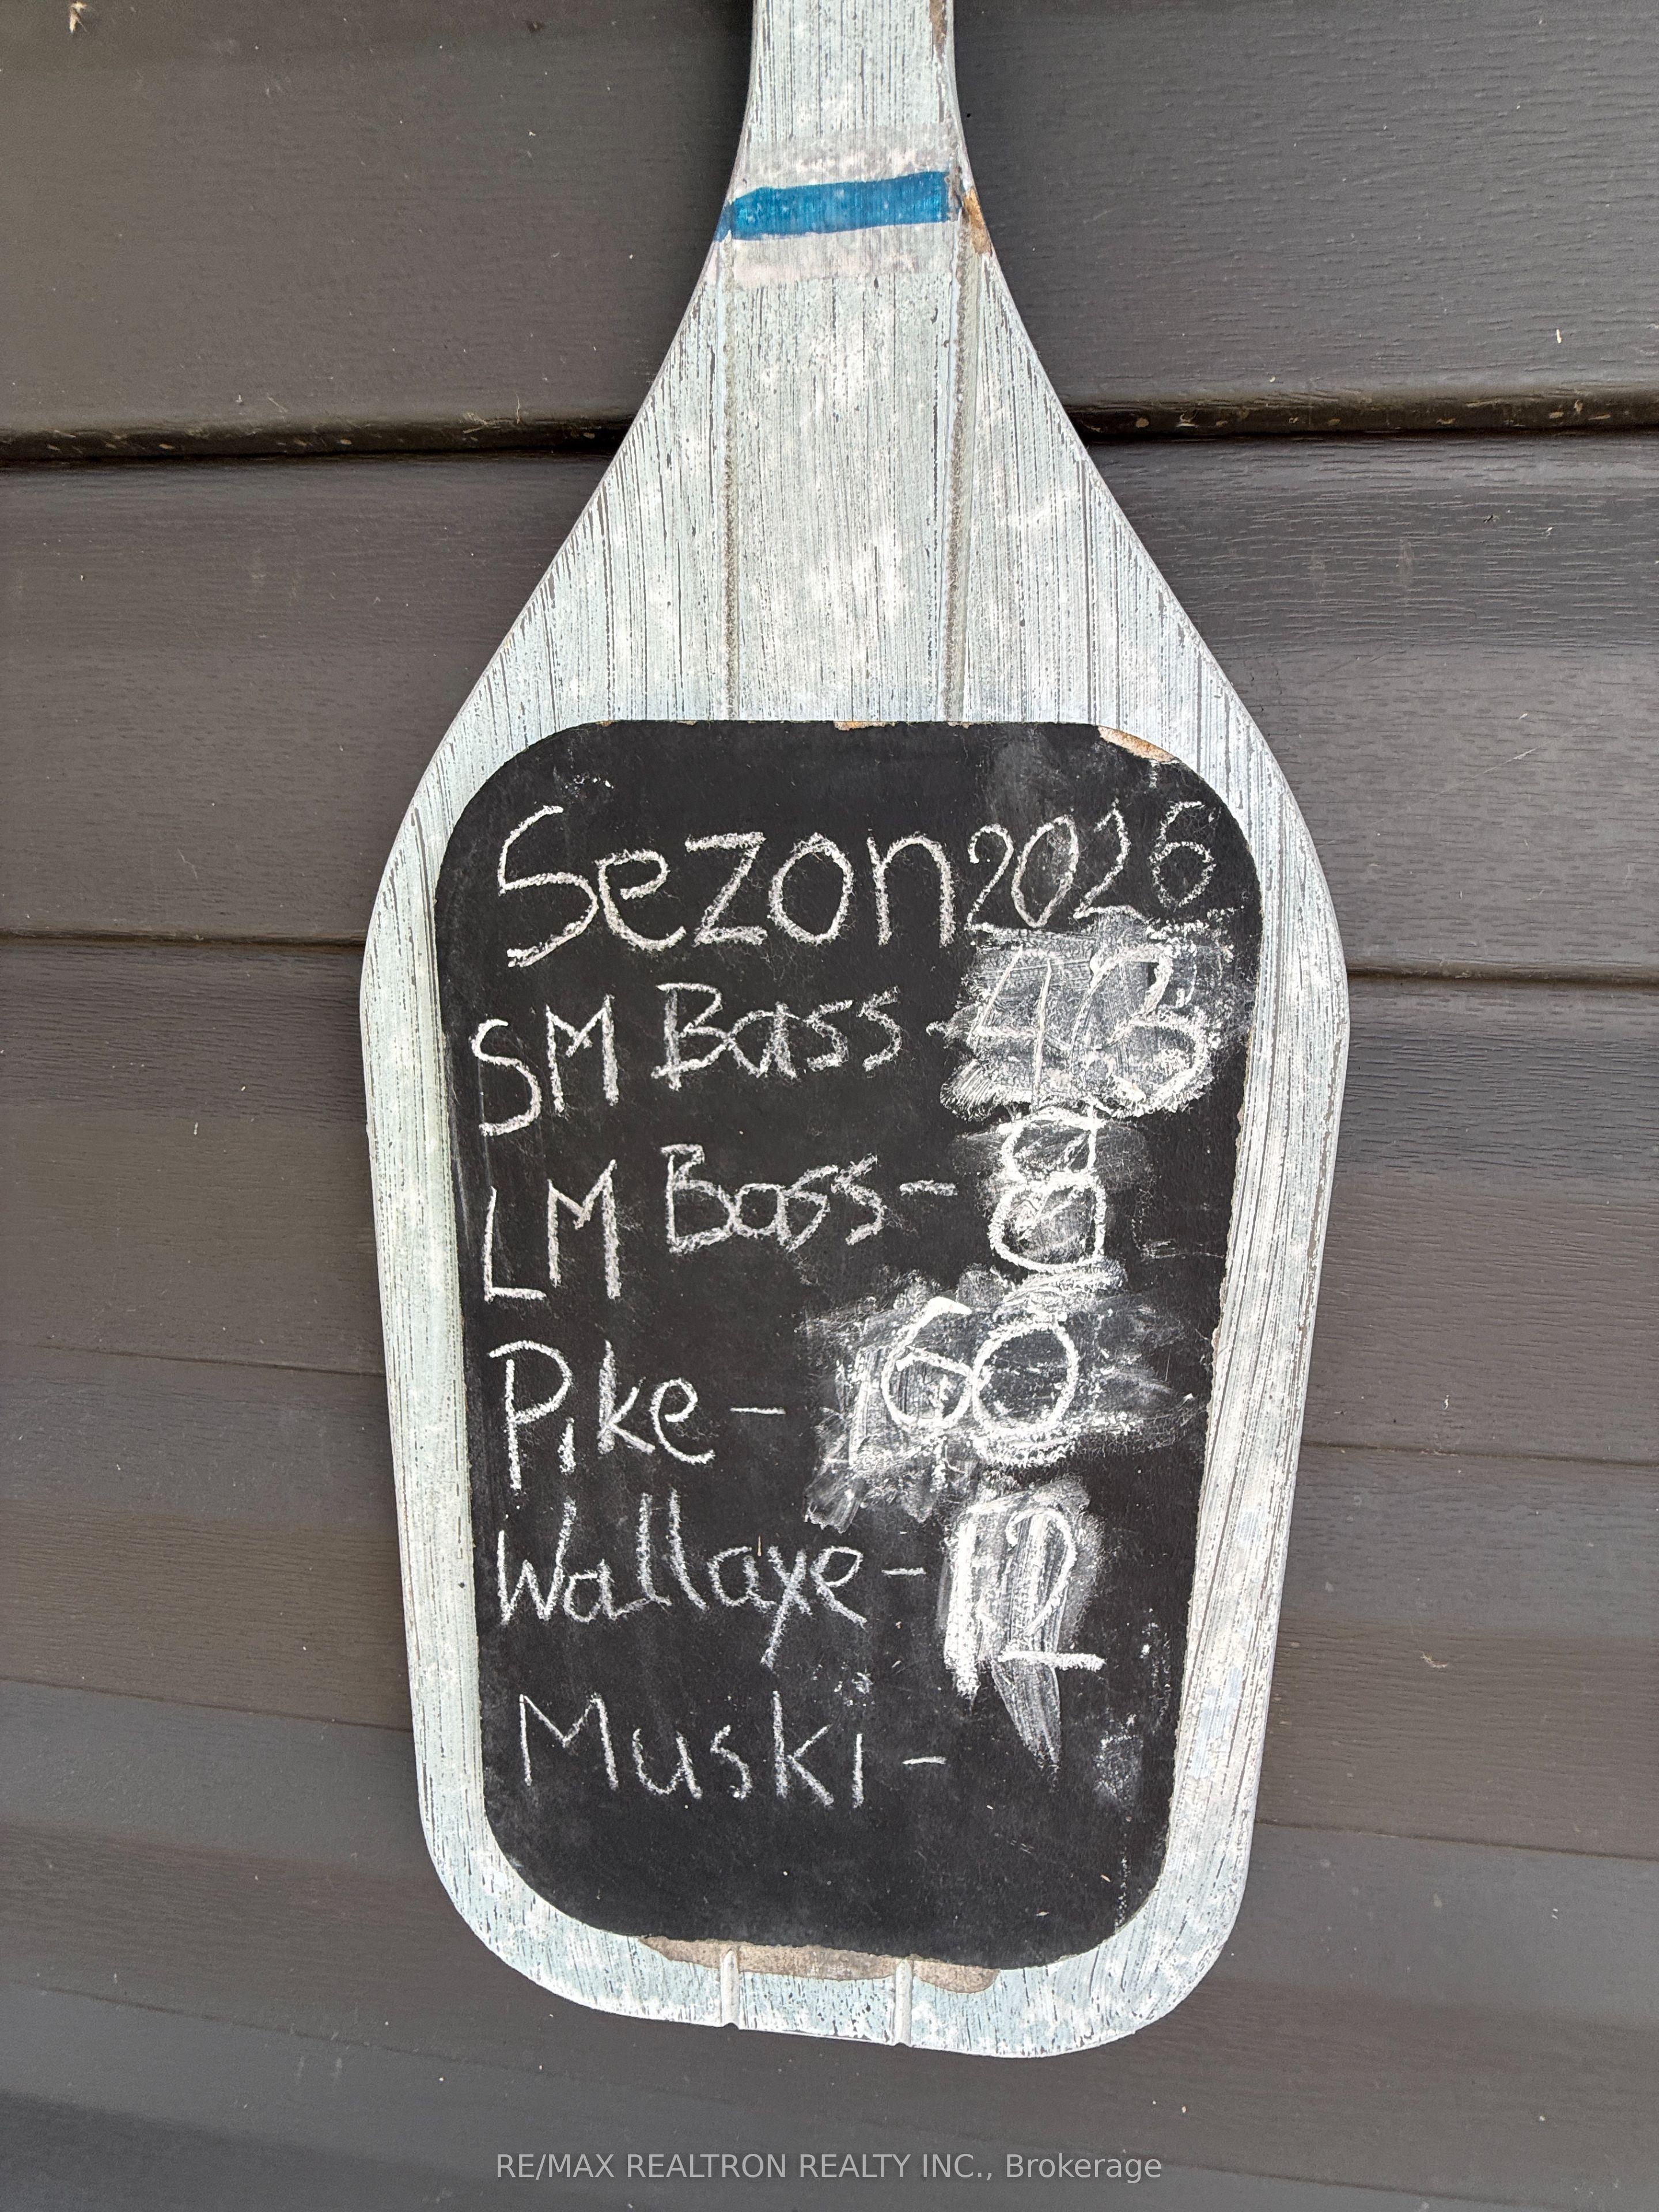 Sezon 2026
SM Bass -
LM Bass - 8
Pike - 60
Wallaye - 12
Muski -
RE/MAX REALTRON REALTY INC., Brokerage